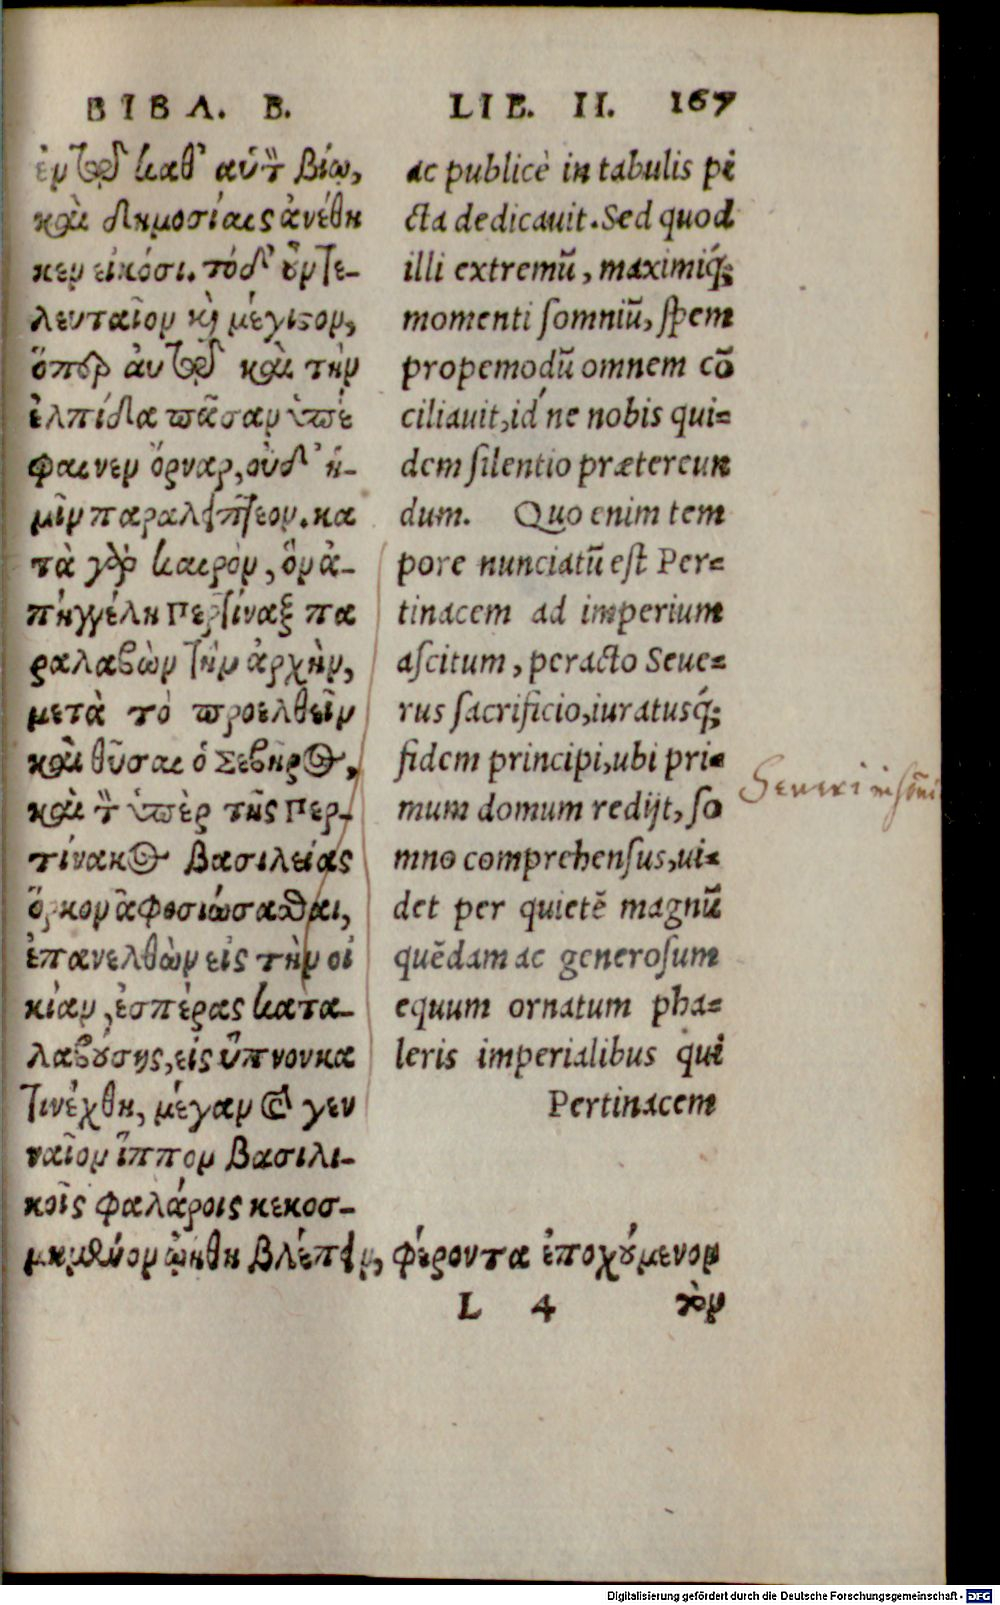 ΒΙΒΛ. Β.
ἐν τῷ καθ' αὑτὸν βίῳ,
καὶ δημοσίαις ἀνέθη
κεν εἰκόσι. τόδ' ὃν τε-
λευταῖον καὶ μέγιστον,
ὅπερ αὐτῷ καὶ τὴν
ἐλπίδα πᾶσαν ὑπέ
φαινεν ὄρναρ, οὐδ' ἡ-
μῖν παραλειπτέον. κα
τὰ γὰρ καιρὸν, ὃν ἀ-
πηγγέλη Περτίναξ πα
ραλαβὼν τὴν ἀρχὴν,
μετὰ τὸ προελθεῖν
καὶ θῦσαι ὁ Σεβῆρος,
καὶ τὸν ὑπὲρ τῆς Περ-
τίνακος βασιλείας
ὅρκον ἀφοσιώσασθαι,
ἐπανελθὼν εἰς τὴν οἰ
κίαν, ἑσπέρας κατα-
λαβούσης, εἰς ὕπνον κα
τινέχθη, μέγαν καὶ γεν
ναῖον ἵππον βασιλι-
κοῖς φαλάροις κεκοσ-
μημένον ᾠήθη βλέπειν, φέροντα ἐποχούμενον
LIB. II. 167
ac publicè in tabulis pi
cta dedicauit. Sed quod
illi extremũ, maximiq́;
momenti somniũ, spem
propemodũ omnem cõ
ciliauit, id ne nobis qui=
dem silentio prætereun
dum. Quo enim tem
pore nunciatũ est Per=
tinacem ad imperium
ascitum, peracto Seue=
rus sacrificio, iuratusq́;
fidem principi, ubi pri=
mum domum redijt, so
mno comprehensus, ui=
det per quietẽ magnũ
quẽdam ac generosum
equum ornatum pha=
leris imperialibus qui
Pertinacem
L 4 τὸν
Seueri insõni
Digitalisierung gefördert durch die Deutsche Forschungsgemeinschaft - DFG